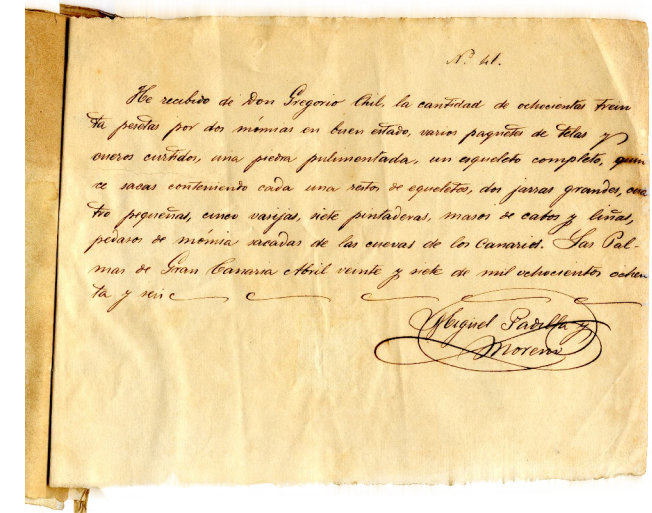 Nº 41.
He recibido de Don Gregorio Chil, la cantidad de ochecientas trein
ta pesetas por dos mómias en buen estado, varios paquetes de telas y
cueros curtidos, una piedra pulimentada, un esqueleto completo, quin
ce sacas conteniendo cada una restos de equeletos, dos jarras grandes, cua
tro pequeñas, cinco vasijas, siete pintaderas, masos de cabos y liñas,
pedasos de mómia sacadas de las cuevas de los Canarios. Las Pal-
mas de Gran Canaria Abril veinte y siete de mil ochecientos ochen
ta y seis
Miguel Padilla y
Moreno